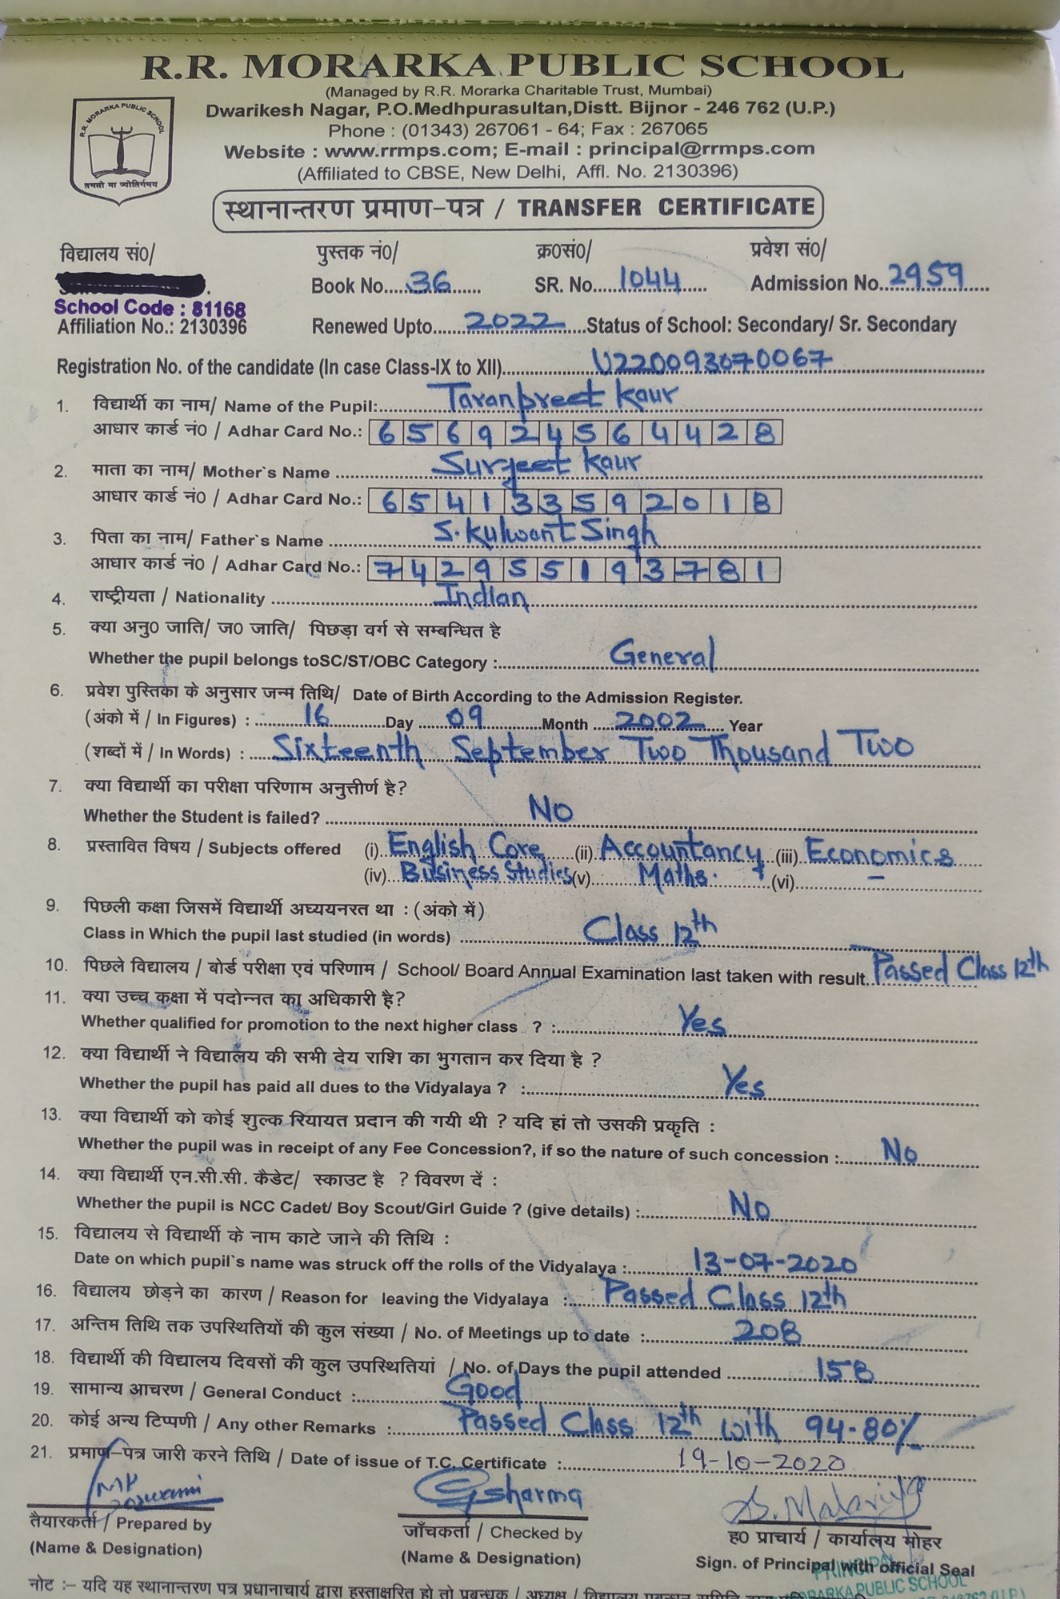 R.R. MORARKA PUBLIC SCHOOL
(Managed by R.R. Morarka Charitable Trust, Mumbai)
Dwarikesh Nagar, P.O.Medhpurasultan,Distt. Bijnor - 246 762 (U.P.)
Phone : (01343) 267061 - 64; Fax : 267065
Website : www.rrmps.com; E-mail : principal@rrmps.com
(Affiliated to CBSE, New Delhi, Affl. No. 2130396)
R.R. MORARKA PUBLIC SCHOOL
तमसो मा ज्योतिर्गमय
स्थानान्तरण प्रमाण-पत्र / TRANSFER CERTIFICATE
विद्यालय सं0/ पुस्तक नं0/ क्र0सं0/ प्रवेश सं0/
Book No.....36...... SR. No....1044...... Admission No.2959
School Code : 81168
Affiliation No.: 2130396 Renewed Upto....2022....Status of School: Secondary/ Sr. Secondary
Registration No. of the candidate (In case Class-IX to XII)..........U220093070067
1. विद्यार्थी का नाम/ Name of the Pupil:..........Taranpreet Kaur
आधार कार्ड नं0 / Adhar Card No.: 656924564428
2. माता का नाम/ Mother`s Name ..........Surjeet Kaur
आधार कार्ड नं0 / Adhar Card No.: 654133592018
3. पिता का नाम/ Father`s Name ..........S. Kulwant Singh
आधार कार्ड नं0 / Adhar Card No.: 742955193781
4. राष्ट्रीयता / Nationality ..........Indian
5. क्या अनु0 जाति/ ज0 जाति/ पिछड़ा वर्ग से सम्बन्धित है
Whether the pupil belongs toSC/ST/OBC Category :..........General
6. प्रवेश पुस्तिका के अनुसार जन्म तिथि/ Date of Birth According to the Admission Register.
(अंको में / In Figures) : ....16....Day ....09....Month ....2002.... Year
(शब्दों में / In Words) : ....Sixteenth September Two Thousand Two
7. क्या विद्यार्थी का परीक्षा परिणाम अनुत्तीर्ण है?
Whether the Student is failed? ..........NO
8. प्रस्तावित विषय / Subjects offered (i) English Core (ii) Accountancy (iii) Economics
(iv) Business Studies (v) Maths. (vi) –
9. पिछली कक्षा जिसमें विद्यार्थी अघ्ययनरत था : (अंको में)
Class in Which the pupil last studied (in words) ..........Class 12th
10. पिछले विद्यालय / बोर्ड परीक्षा एवं परिणाम / School/ Board Annual Examination last taken with result. Passed Class 12th
11. क्या उच्च कक्षा में पदोन्नत का अधिकारी है?
Whether qualified for promotion to the next higher class ? :..........Yes
12. क्या विद्यार्थी ने विद्यालय की सभी देय राशि का भुगतान कर दिया है ?
Whether the pupil has paid all dues to the Vidyalaya ? :..........Yes
13. क्या विद्यार्थी को कोई शुल्क रियायत प्रदान की गयी थी ? यदि हां तो उसकी प्रकृति :
Whether the pupil was in receipt of any Fee Concession?, if so the nature of such concession :..........No
14. क्या विद्यार्थी एन.सी.सी. कैडेट/ स्काउट है ? विवरण दें :
Whether the pupil is NCC Cadet/ Boy Scout/Girl Guide ? (give details) :..........No
15. विद्यालय से विद्यार्थी के नाम काटे जाने की तिथि :
Date on which pupil`s name was struck off the rolls of the Vidyalaya :..........13-07-2020
16. विद्यालय छोड़ने का कारण / Reason for leaving the Vidyalaya :....Passed Class 12th
17. अन्तिम तिथि तक उपस्थितियों की कुल संख्या / No. of Meetings up to date :..........208
18. विद्यार्थी की विद्यालय दिवसों की कुल उपस्थितियां / No. of Days the pupil attended ..........158
19. सामान्य आचरण / General Conduct :..........Good
20. कोई अन्य टिप्पणी / Any other Remarks :..........Passed Class 12th with 94-80%
21. प्रमाण-पत्र जारी करने तिथि / Date of issue of T.C. Certificate :..........19-10-2020
Gsharma
तैयारकर्ता / Prepared by जाँचकर्ता / Checked by ह0 प्राचार्य / कार्यालय मोहर
(Name & Designation) (Name & Designation) Sign. of Principal with official Seal
PRINCIPAL
नोट :– यदि यह स्थानान्तरण पत्र प्रधानाचार्य द्वारा हस्ताक्षरित हो तो प्रबन्धक / अध्यक्ष / विद्यालय
MORARKA PUBLIC SCHOOL